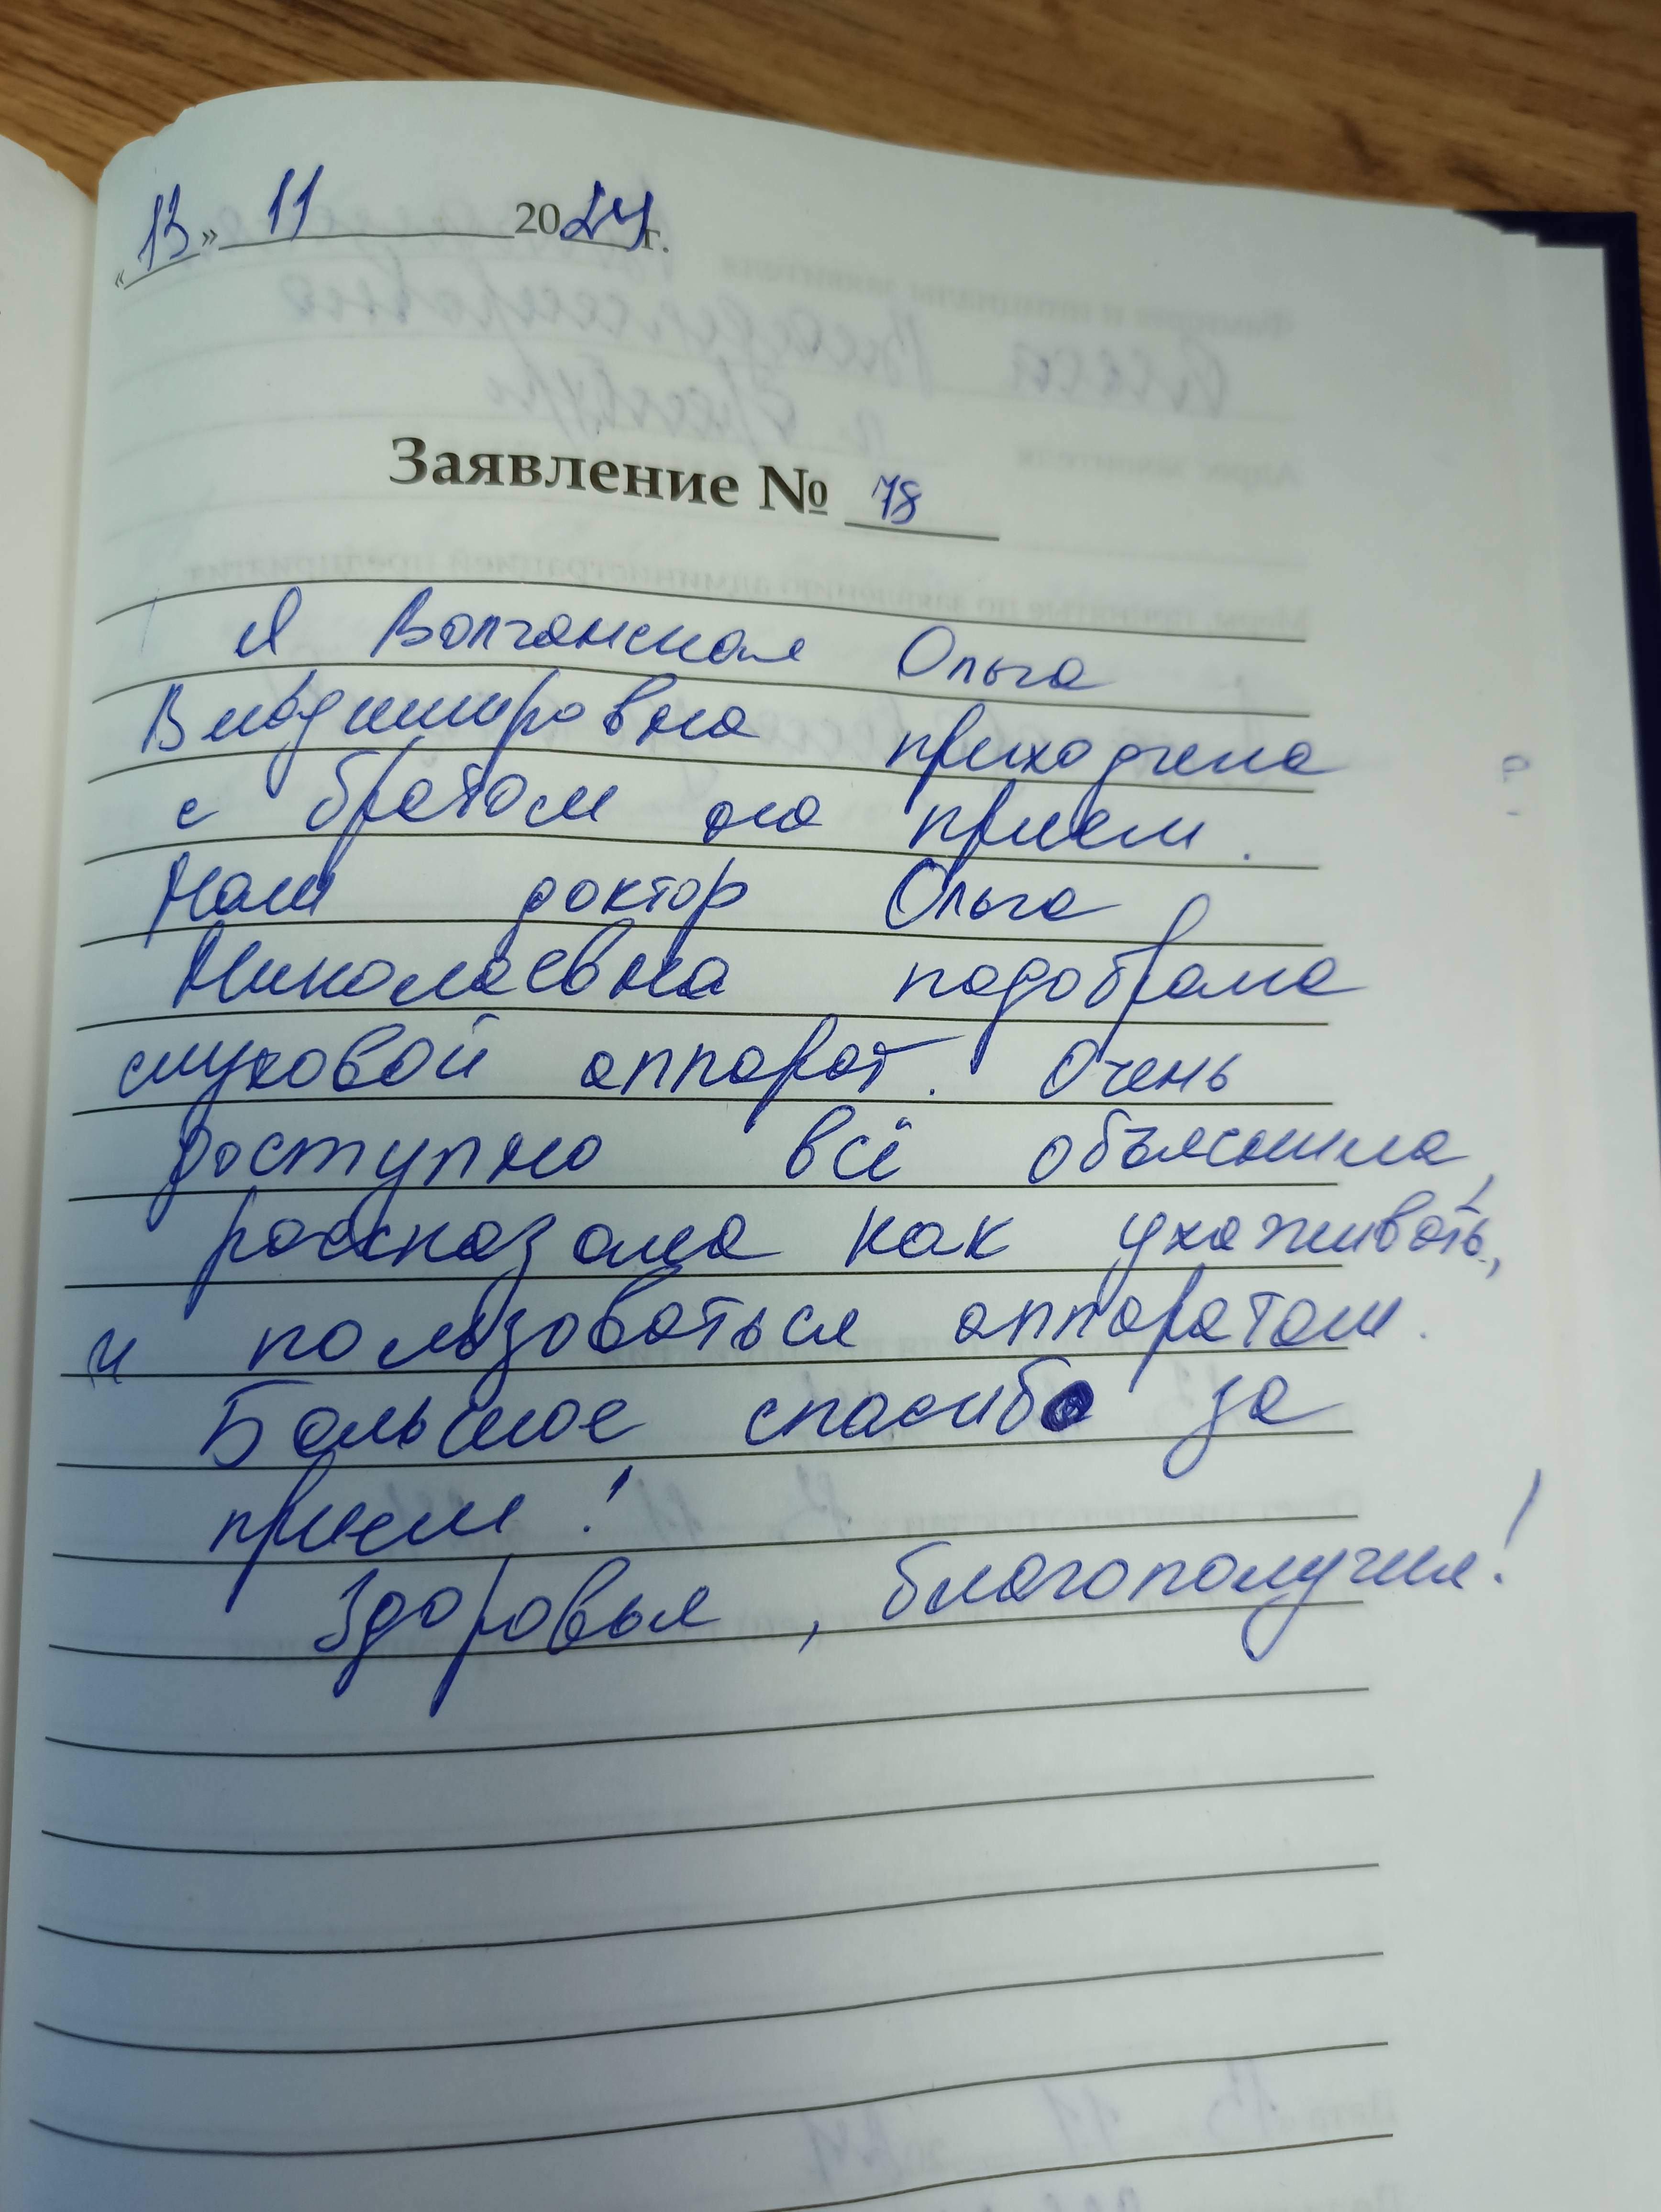 «13» 11 2024 г.
Заявление № 78
Я Волчанская Ольга
Владимировна приходила
с братом на прием.
Наш доктор Ольга
Николаевна подобрала
слуховой аппарат. Очень
доступно всё объяснила,
рассказала как ухаживать,
и пользоваться аппаратом.
Большое спасибо за
прием!
Здоровья, благополучия!